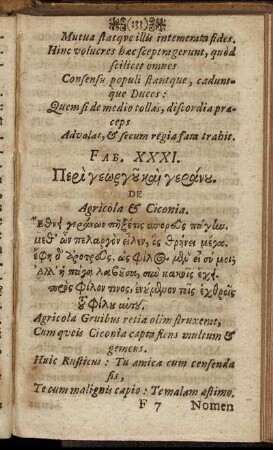 (133)
Mutua statque illis intemerata fides.
Hinc volucres hac sceptra gerunt, quod
scilicet omnes
Consensu populi stantque, cadunt-
que Duces:
Quem si de medio tollas, discordia præ-
ceps
Advolat, & secum regia fata trahit.
FAB. XXXI.
Περὶ γεωργοῦ καὶ γεράνου.
DE
Agricola & Ciconia.
γεράνων
μεθ' ὧν πελαργὸν εἷλεν, ὃς θρηνεῖ μέγα.
ἔφη ὁ ἀροτρεὺς, ὡς φίλος
πρὸς φίλον τινος,
Agricola Gruibus retia olim struxerat,
Cum queis Ciconia capta fiens multum &
gemens.
Huic Rusticus: Tu amica cum censenda
sis,
Te cum malignis capio: Te malam æstimo.
F 7 Nomen